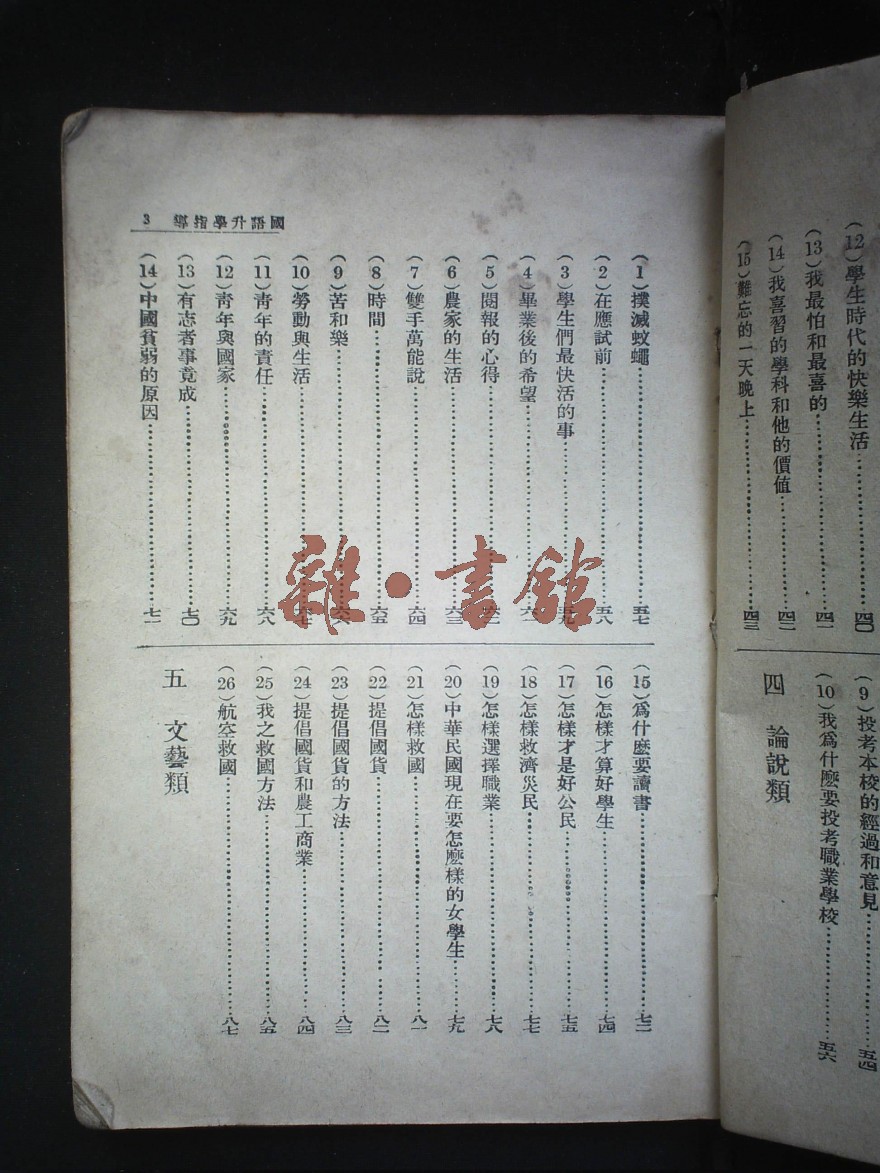 (12)學生時代的快樂生活……四〇
(13)我最怕和最喜的……四一
(14)我喜習的學科和他的價值……四二
(15)難忘的一天晚上……四三
(9)投考本校的經過和意見……五四
(10)我爲什麽要投考職業學校……五六
四 論說類
國語升學指導 3
(1)撲滅蚊蠅……五七
(2)在應試前……五八
(3)學生們最快活的事……五九
(4)畢業後的希望……六一
(5)閱報的心得……六二
(6)農家的生活……六三
(7)雙手萬能說……六四
(8)時間……六五
(9)苦和樂……六六
(10)勞動與生活……六七
(11)靑年的責任……六八
(12)靑年與國家……六九
(13)有志者事竟成……七〇
(14)中國貧弱的原因……七一
(15)爲什麽要讀書……七二
(16)怎樣才算好學生……七四
(17)怎樣才是好公民……七五
(18)怎樣救濟災民……七七
(19)怎樣選擇職業……七八
(20)中華民國現在要怎麽樣的女學生……七九
(21)怎樣救國……八一
(22)提倡國貨……八二
(23)提倡國貨的方法……八三
(24)提倡國貨和農工商業……八四
(25)我之救國方法……八五
(26)航空救國……八七
五 文藝類
雜·書館